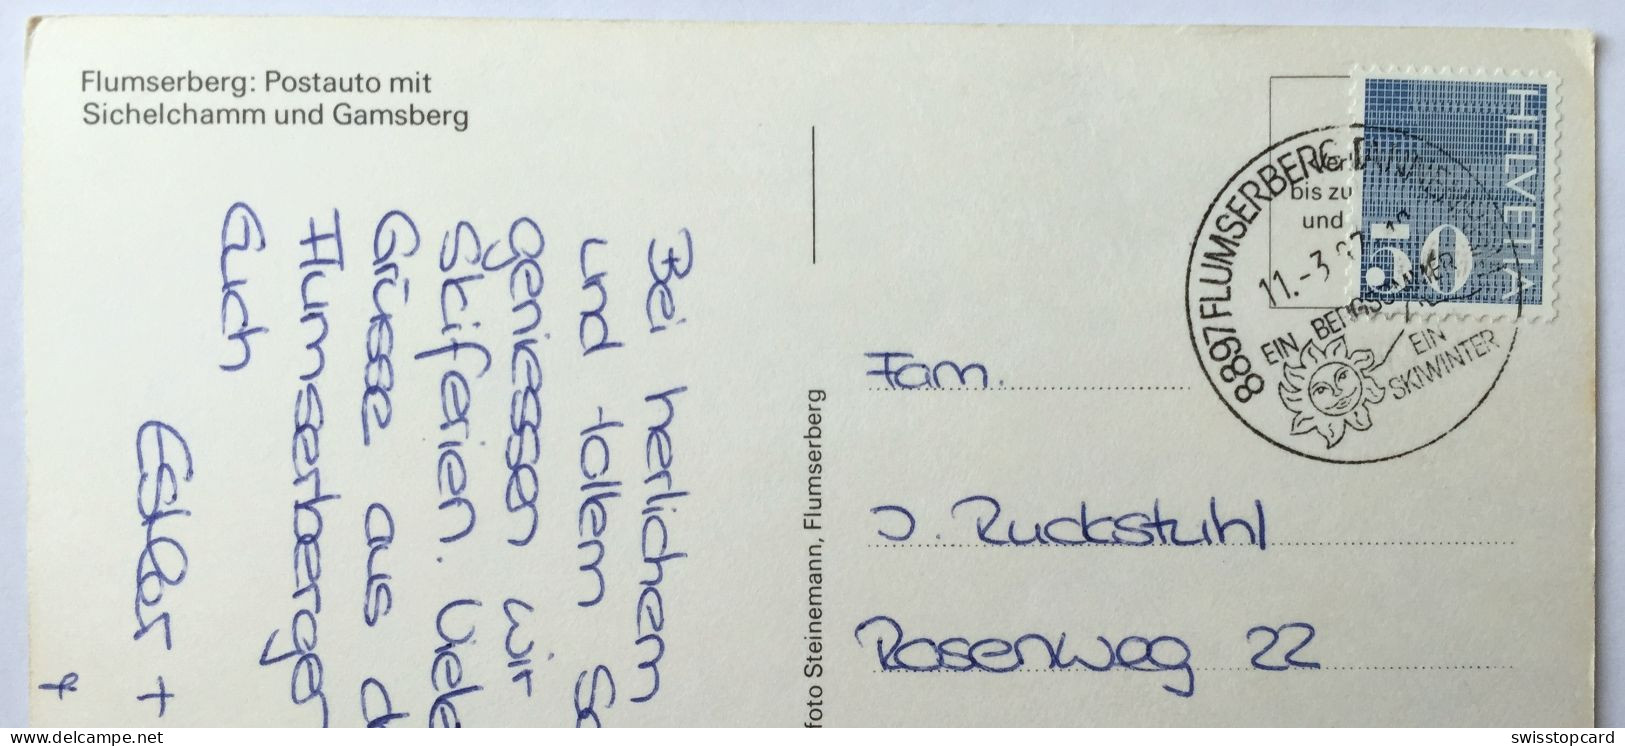 Flumserberg: Postauto mit
Sichelchamm und Gamsberg
Bei herlichem
und tollem
geniessen wir
Skiferien. Viele
Grüsse aus
Flumserberger
Euch
+
foto Steinemann, Flumserberg
HELVETIA
50
bis zu
und
8897 FLUMSERBERG
11.-3
EIN BERGSOMMER
EIN
SKIWINTER
Fam.
J. Ruckstuhl
Rosenweg 22
delcampe.net
swisstopcard